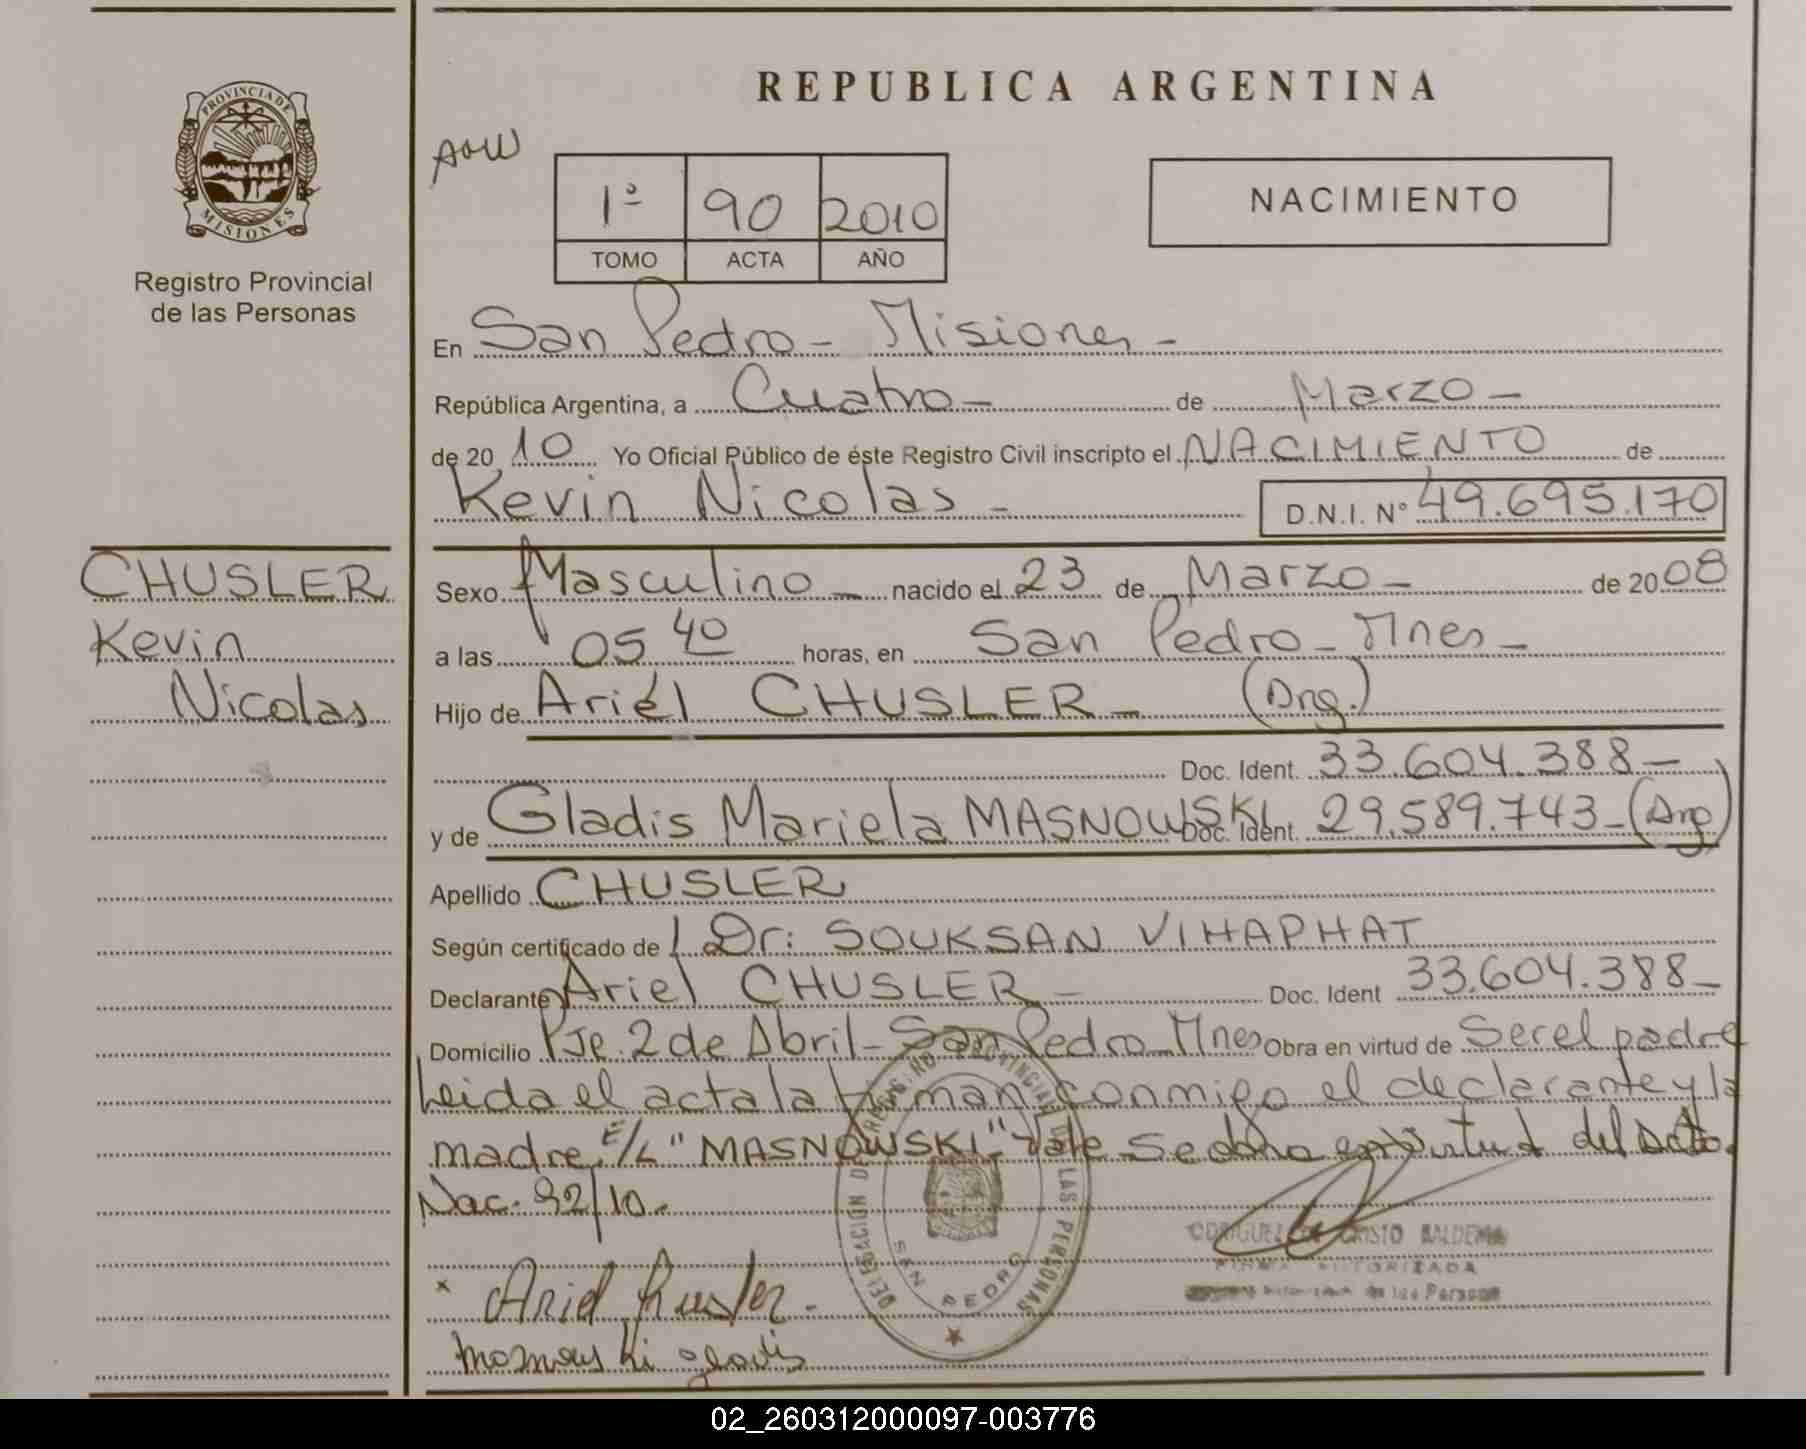 PROVINCIA DE
MISIONES
Registro Provincial
de las Personas
REPUBLICA ARGENTINA
1º 90 2010
TOMO ACTA AÑO
NACIMIENTO
En San Pedro - Misiones -
República Argentina, a Cuatro - de Marzo -
de 20 10 Yo Oficial Público de éste Registro Civil inscripto el NACIMIENTO de
Kevin Nicolas - D.N.I. Nº 49.695.170
CHUSLER
Kevin
Nicolas
Sexo Masculino - nacido el 23 de Marzo - de 20 08
a las 05 40 horas, en San Pedro - Mnes -
Hijo de Ariel CHUSLER - (Arg.)
Doc. Ident. 33.604.388 -
y de Gladis Mariela MASNOWSKI Doc. Ident. 29.589.743 - (Arg)
Apellido CHUSLER
Según certificado de Dr: SOUKSAN VIHAPHAT
Declarante Ariel CHUSLER - Doc. Ident 33.604.388 -
Domicilio Pje. 2 de Abril - San Pedro - Mnes Obra en virtud de Ser el padre
Leida el acta la firman conmigo el declarante y la
madre. E/L "MASNOWSKI" Vale Se en virtud del Acta
Nac. 92/10.-
DELEGACION DEL REGISTRO PROVINCIAL DE LAS PERSONAS
SAN PEDRO
CRISTO
FIRMA AUTORIZADA
de las Personas
x Ariel
gladis
02_260312000097-003776